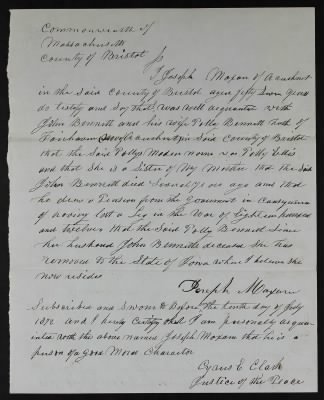 Commonwealth of
Massachusetts
County of Bristol
I Joseph Moxam of Acushnet
in the Said County of Bristol aged fifty Seven years
do testify and say that I was well acquainted with
John Bennett and his wife Polly Bennett both of
Fairhaven Acushnet in Said County of Bristol
that the Said Pollys Maden name was Polly Ellis
and that She is a Sister of My Mother that the Said
John Bennett died Several years ago and that
he drew a Pension from the Goverment in Consequence
of having lost a leg in the War of Eighteen hundred
and twelve that the Said Polly Bennett Since
her husband John Bennetts deceased She has
removed to the State of Iowa where I believe she
now resides
Joseph Moxam
Subscribed and Sworn to Before the tenth day of July
1872 and I hereby Certify that I am personaly acquain
ted with the above named Joseph Moxam that he is a
person of a Good Moral Character
Cyrus E Clark
Justice of the Peace